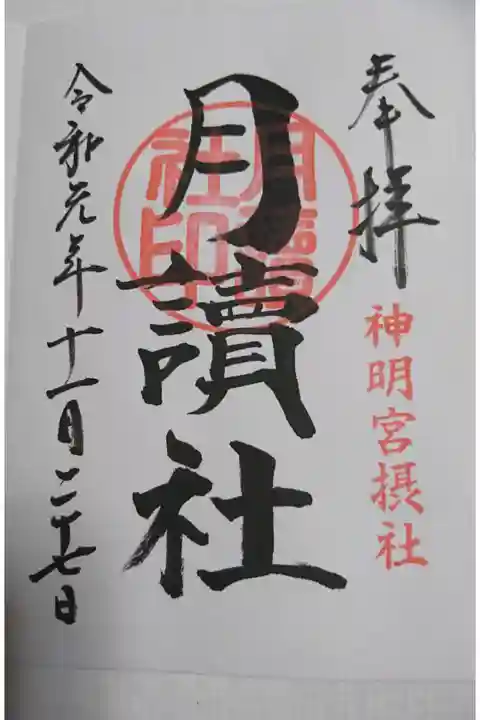 奉拝
神明宮摂社
月讀社
月讀社印
令和元年十一月二十七日